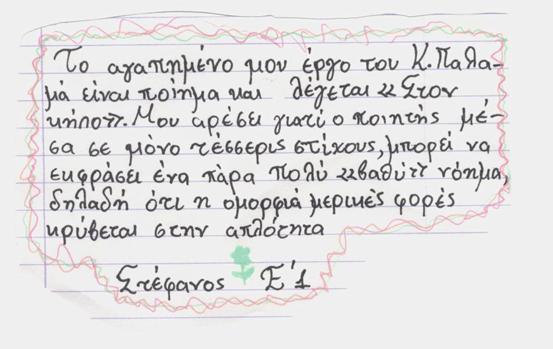 Το αγαπημένο μου έργο του Κ. Παλα-
μά είναι ποίημα και λέγεται «Στον
κήπο». Μου αρέσει γιατί ο ποιητής μέ-
σα σε μόνο τέσσερις στίχους, μπορεί να
εκφράσει ένα πάρα πολύ «βαθύ» νόημα,
δηλαδή ότι η ομορφιά μερικές φορές
κρύβεται στην απλότητα
Στέφανος Ε΄1